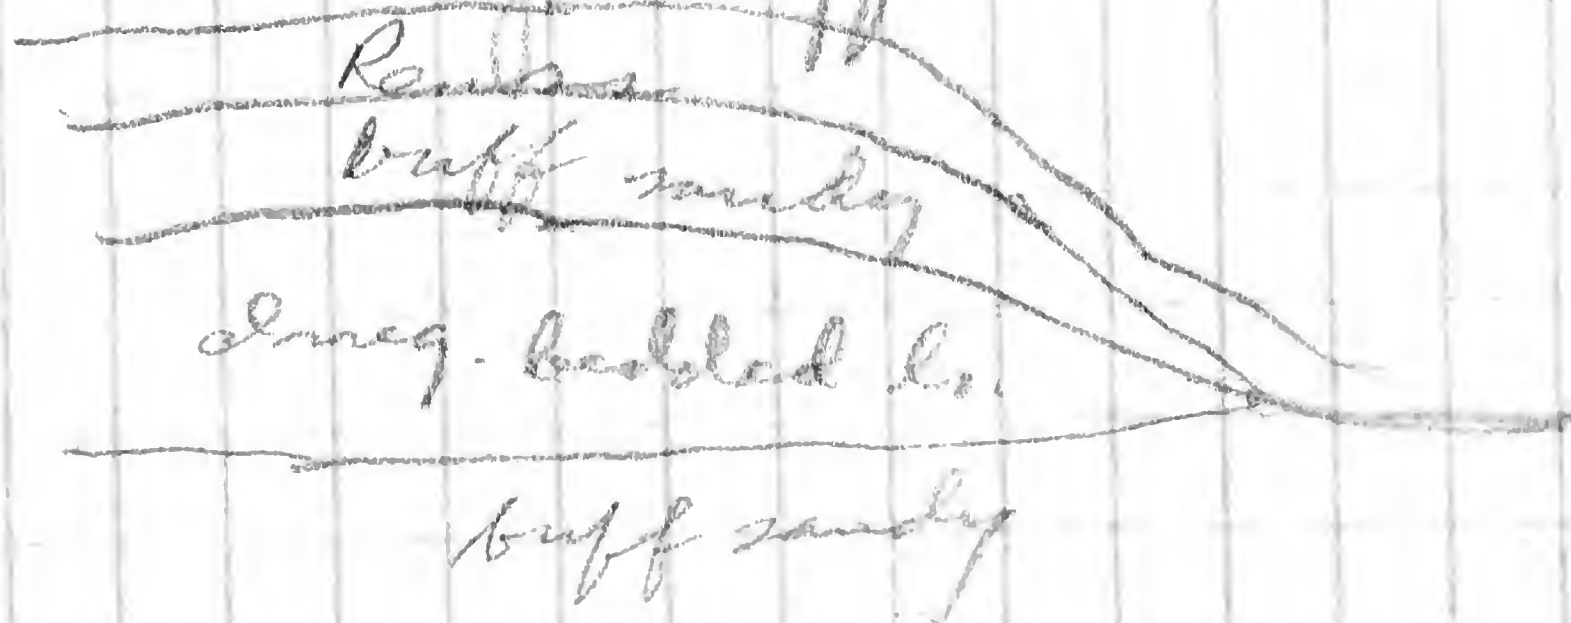 buff sandy
irreg. bedded ls.
buff sandy